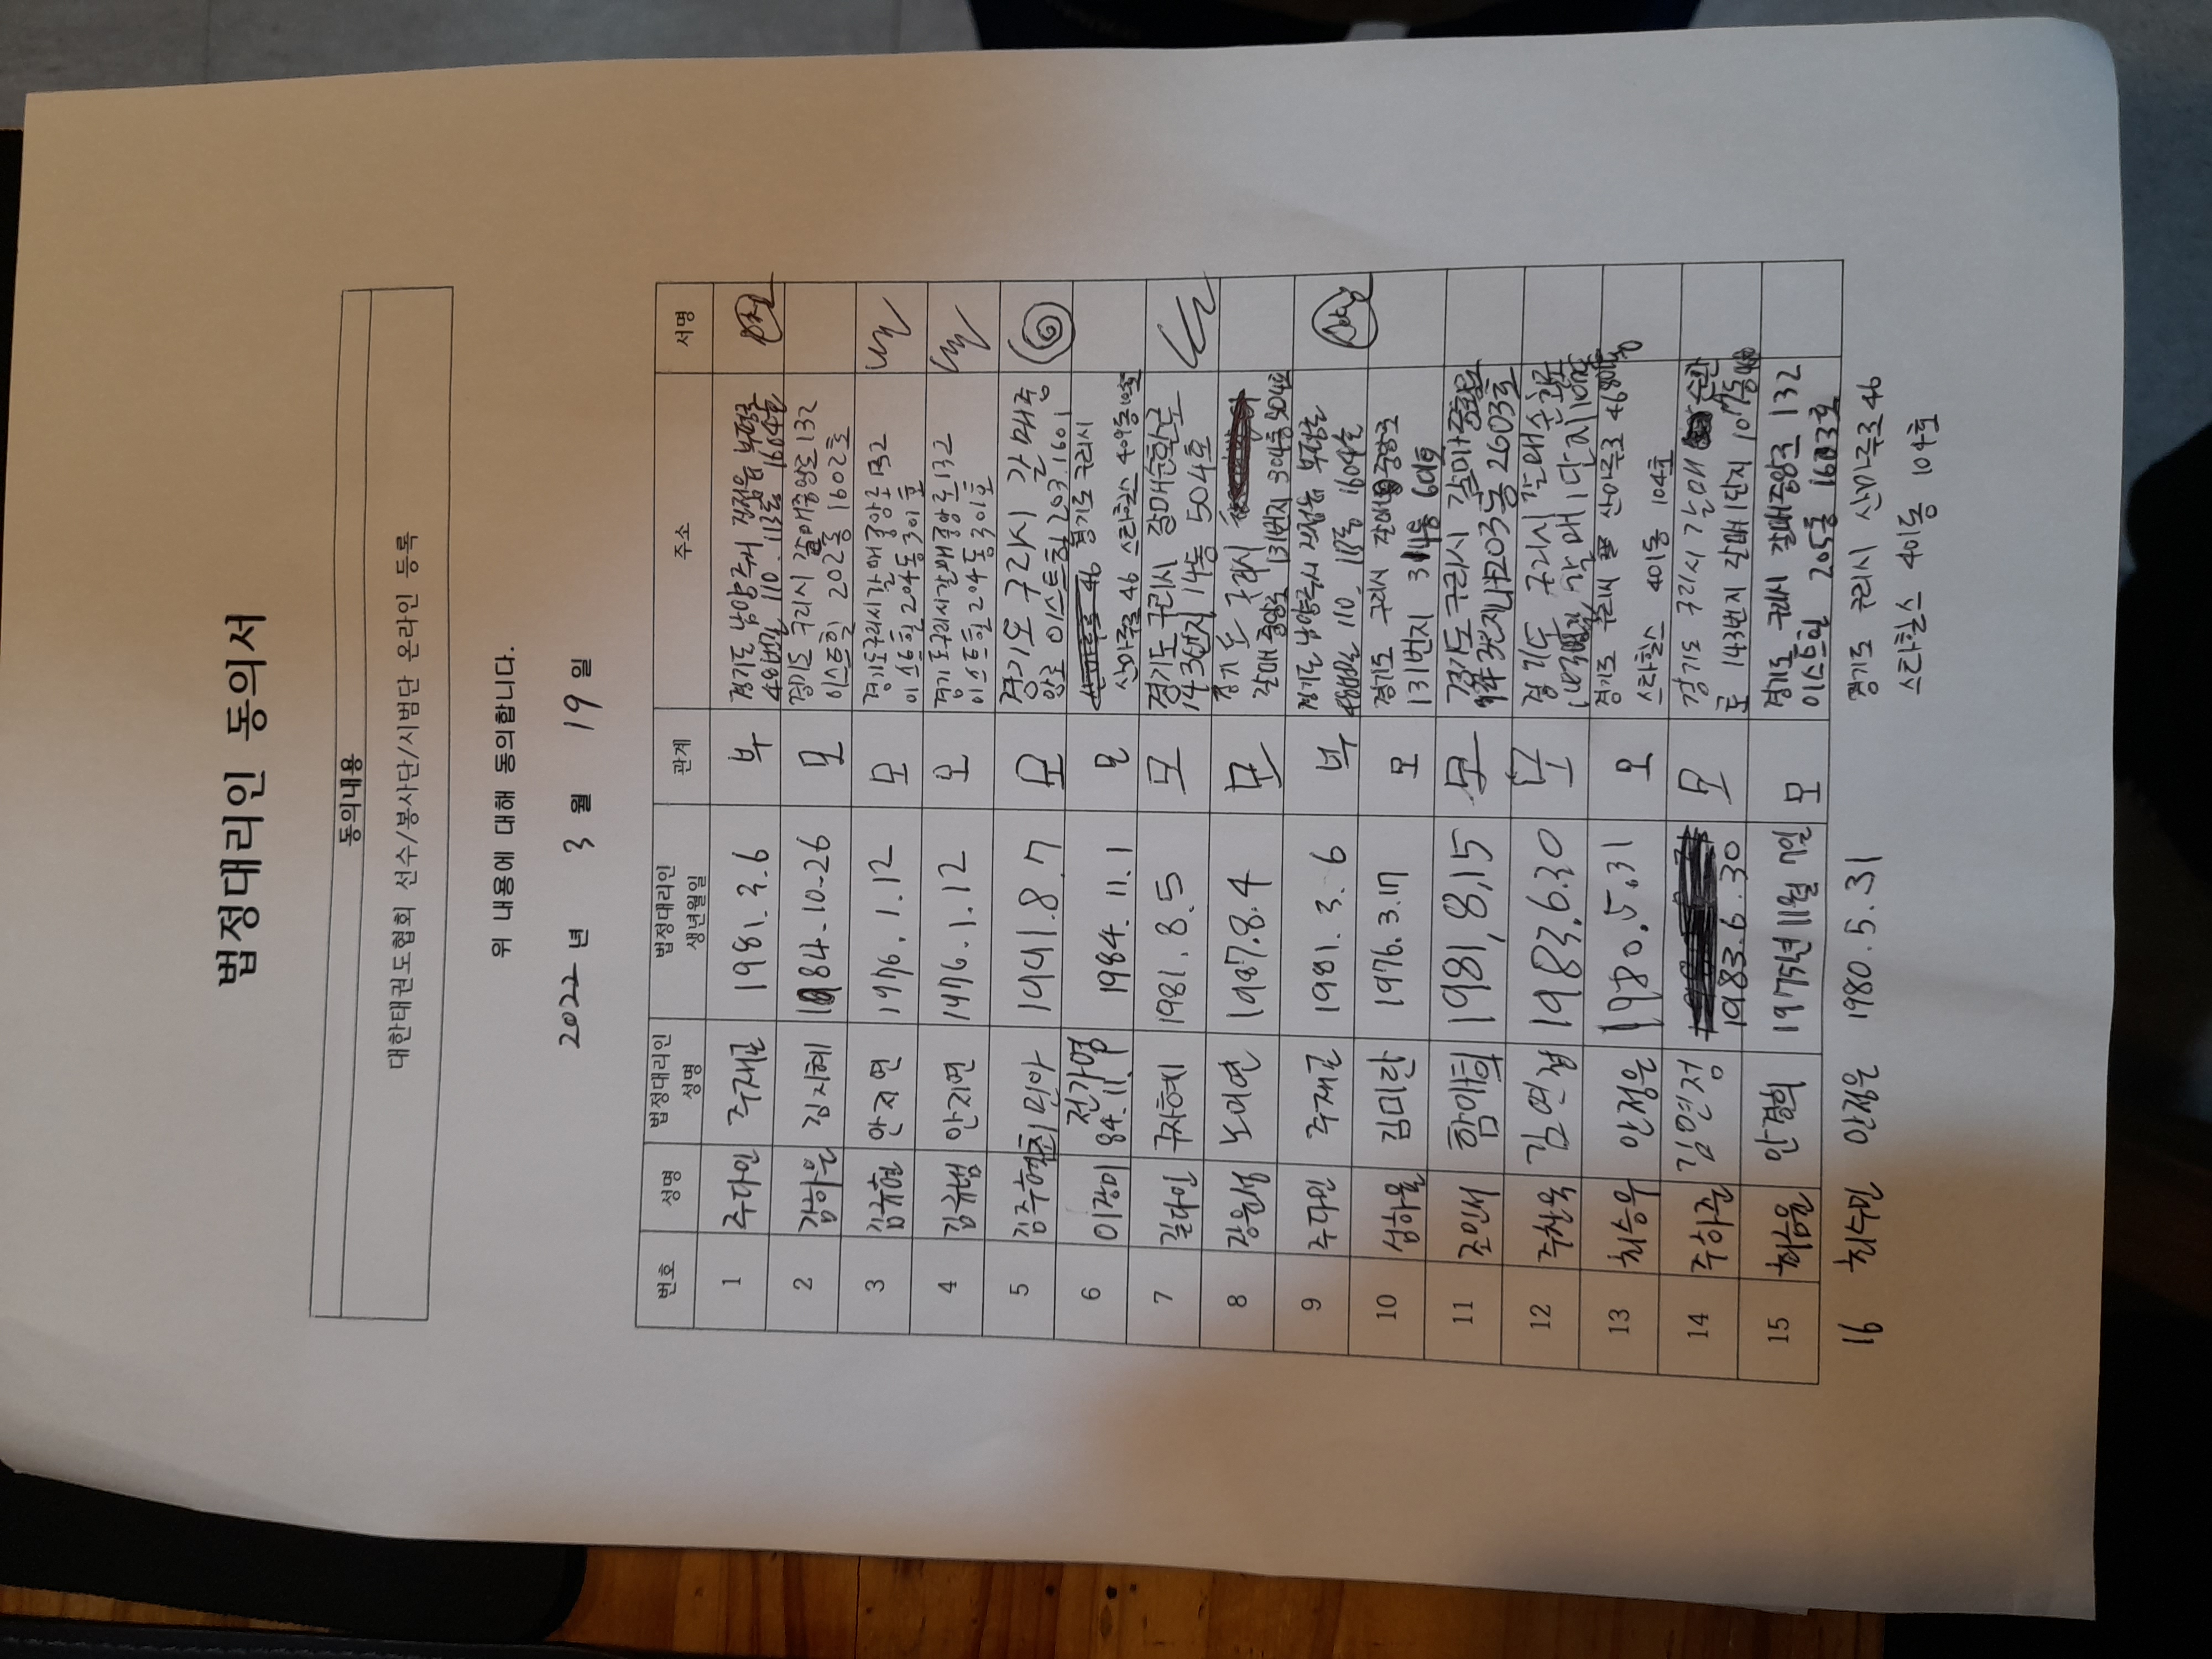 법정대리인 동의서
동의내용
대한태권도협회 선수/봉사단/시범단 온라인 등록
위 내용에 대해 동의합니다.
2022 년 3 월 19 일
번호 성명 법정대리인 성명 법정대리인 생년월일 관계 주소 서명
1 주다인 주재근 1981.3.6 부 경기도 남양주시 진접읍 부평로
48번길 110. 113동 1604호
2 김하은 김지혜 1984-10-26 모 경기도 구리시 갈매중앙로 132
이스트힐 202동 1602호
3 김규현 안지연 1976.1.12 모 경기도구리시갈매중앙로132
이스트힐 204동 301호
4 김규범 안지연 1976.1.12 모 경기도구리시갈매중앙로132
이스트힐 204동 301호
5 최민아 모 경기도 구리시 갈매중
앙로 이스트힐 203. 1601
6 이장미 전가영 1984.11.1 모 경기도 구리시
84.11.1
산마루로 46 스타힐스 409동
7 길다인 구자혜 1981.8.5 모 경기도 구리시 갈매순환로
143번지 14동 504호
8 강윤성 노미연 1987.8.4 모 경기도 구리시
갈매중앙로 131번지 304동 504호
9 주다민 주재근 1981.3.6 부 경기도 남양주시 진접읍 부평로
48번길 110. 113동 1604호
10 김미란 1976.3.17 모 경기도 구리시 갈매중앙로
131번지 314동 601호
11 조민서 1981.8.15 모 경기도 구리시 갈매중앙로
203동 2603호
12 주찬욱 김연정 1983.6.30 모 경기도 구리시 갈매순환로
갈매1단지
13 최승우 안정은 1980.5.31 모 경기도 구리시 산마루로 46
스타힐스 401동 104호
14 주하준 김연정 1983.6.30 모 경기도 구리시 갈매 순환
로 143번지 갈매1단지 107동
15 최승윤 안경희 1975년 11월 7일 모 경기도 구리시 갈매중앙로 132
이스트힐 205동 1603호
16 최수민 안정은 1980.5.31 경기도 구리시 산마루로 46
스타힐스 401동 104호